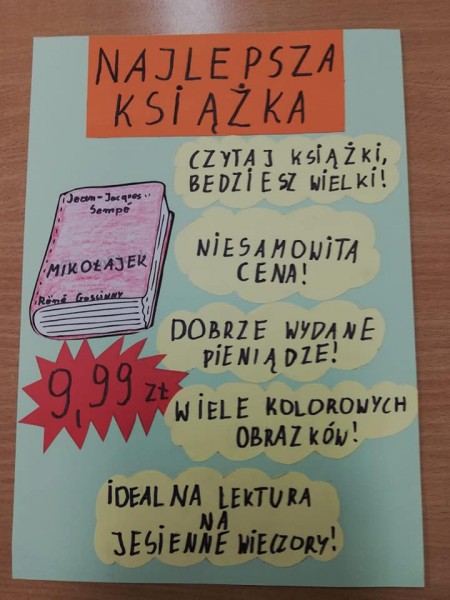 NAJLEPSZA
KSIĄŻKA
CZYTAJ KSIĄŻKI,
BEDZIESZ WIELKI!
Jean-Jacques
Sempé
MIKOŁAJEK
Réné Gościnny
NIESAMOWITA
CENA!
DOBRZE WYDANE
PIENIĄDZE!
9,99 ZŁ
WIELE KOLOROWYCH
OBRAZKÓW!
IDEALNA LEKTURA
NA
JESIENNE WIECZORY!